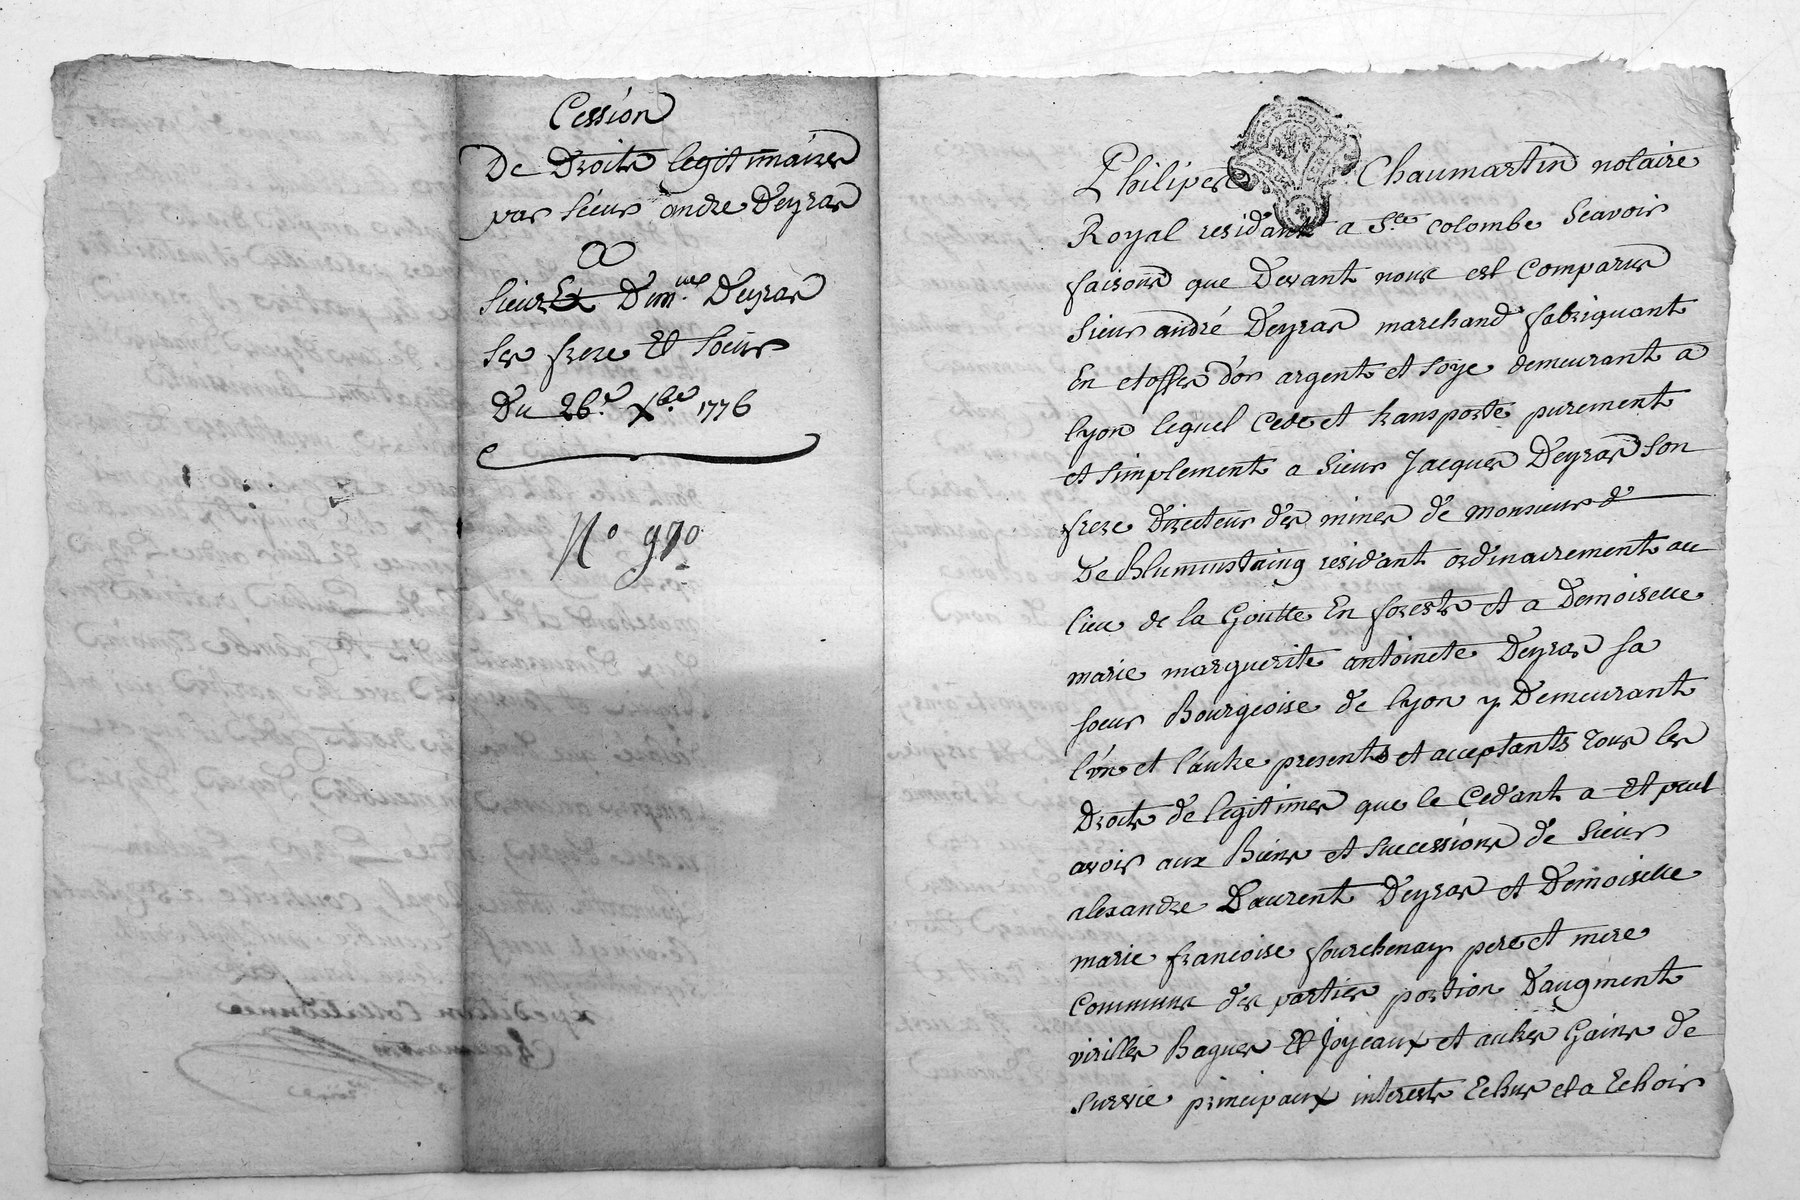 Cession
De Droits legitimaires
par sieur andre Deyras
a
sieur Et Dem.lle Deyras
ses frere Et soeur
Du 26.e Xbre 1776
N° 970
Philipes Chaumartin notaire
Royal residant a Ste colombe scavoir
faisons que Devant nous est Comparus
sieur andré Deyras marchand fabriquant
En etoffes d'or argent et soye demeurant a
lyon lequel Cede et transporte purement
et simplement a sieur Jacques Deyras son
frere Directeur des mines de monsieur
De Blumenstaing residant ordinairement au
lieu de la Goutte En forest et a Demoiselle
marie marguerite antoinete Deyras sa
soeur Bourgeoise de lyon y Demeurant
l'un et l'autre presents et acceptants tous les
Droits de legitimes que le Cedant a Et peut
avoir aux Biens et successions de sieur
alexandre Laurent Deyras et Demoiselle
marie francoise fourchenay pere et mere
communs des parties portion D'augment
virilles Bagues Et Joyeaux et autres Gains de
survie principaux interests Echus et a Echoir